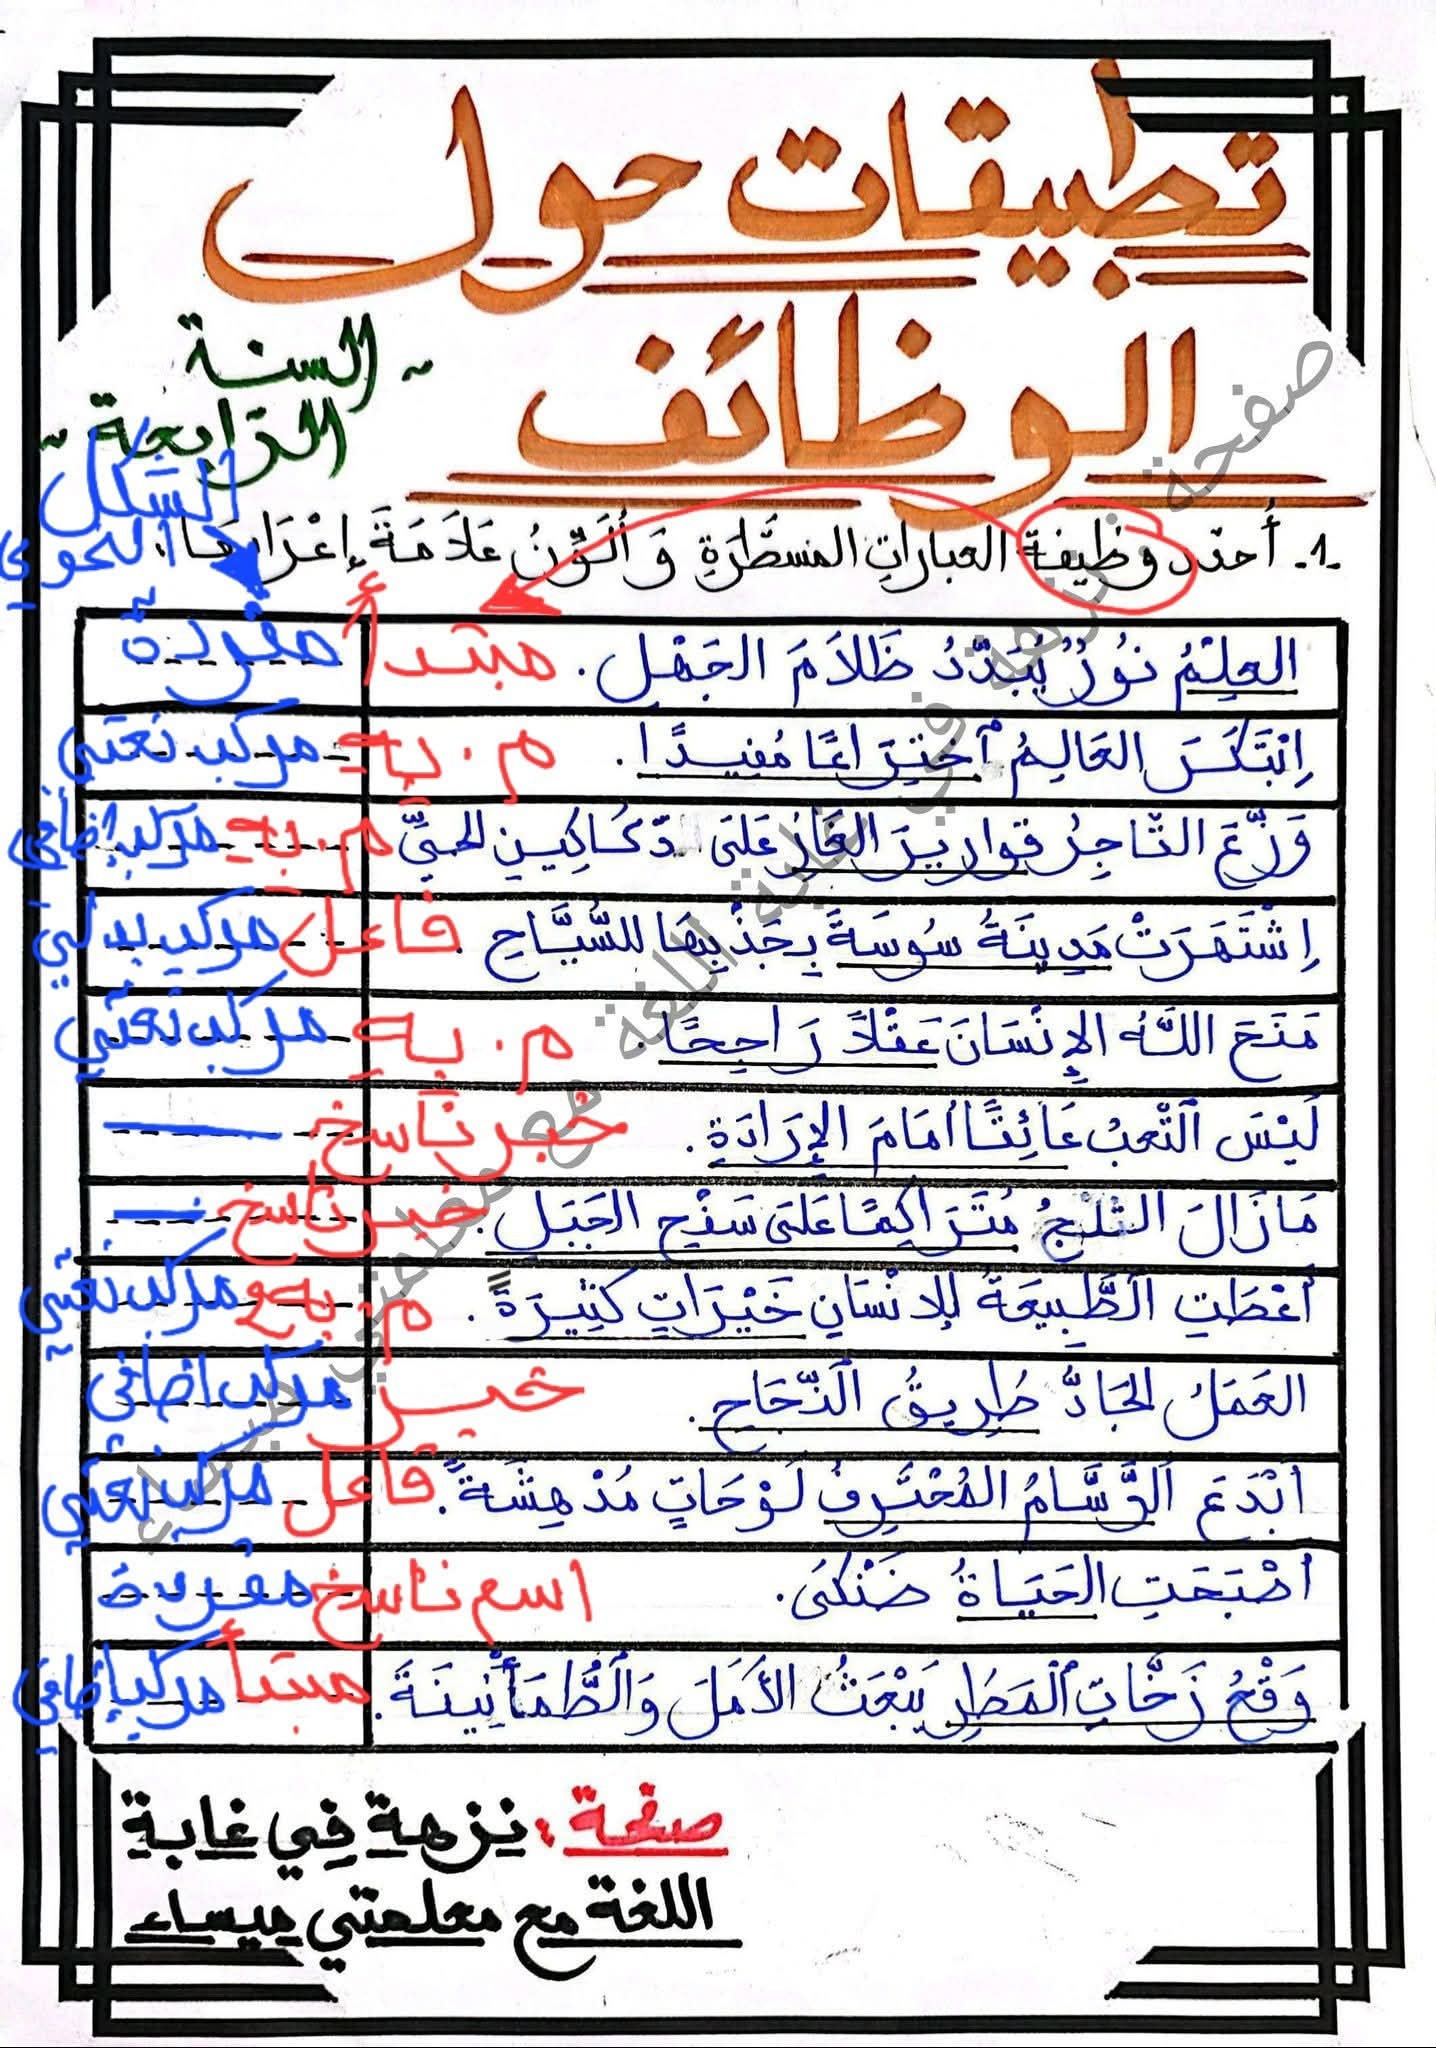 تطبيقات حول
الوظائف
- السنة
الرّابعة -
الشكل
النحوي
1- أُحدّد وظيفة العبارات المسطّرة وَ أُلَوِّنُ عَلَامَةَ إِعْرَابِهَا:
العِلْمُ نُورٌ يُبَدِّدُ ظَلاَمَ الجَهْلِ. مبتدأ مفردة
اِبْتَكَرَ العَالِمُ اخْتِرَاعًا مُفِيدًا. م.به مركب نعتي
وَزَّعَ التّاجِرُ قوارِيرَ الغَازِ عَلَى دَكَاكِينِ الحَيِّ م.به مركب إضافي
اِشْتَهَرَتْ مَدِينَةُ سُوسَةَ بِجَذْبِهَا للسُّيَّاحِ. فاعل مركب بدلي
مَنَحَ اللَّهُ الإِنْسَانَ عَقْلاً رَاجِحًا. م.به مركب نعتي
لَيْسَ التّعبُ عَائِقًا أمَامَ الإِرَادَةِ. خبر ناسخ
مَازَالَ الثلْجُ مُتَرَاكِمًا عَلَى سَفْحِ الجَبَلِ. خبر ناسخ
أعْطَتِ الطَّبِيعَةُ لِلإنْسَانِ خَيْرَاتٍ كَثِيرَةً. م.به مركب نعتي
العَمَلُ الجَادُّ طَرِيقُ النّجَاحِ. خبر مركب اضافي
أبْدَعَ الرَّسَّامُ المُحْتَرِفُ لَوْحَاتٍ مُدْهِشَةً. فاعل مركب نعتي
أصْبَحَتِ الحَيَاةُ ضَنْكَى. اسم ناسخ مفردة
وَقْعُ زَخَّاتِ المَطَرِ يَبْعَثُ الأَمَلَ وَالطُّمَأْنِينَةَ. مبتدأ مركب إضافي
صفحة: نزهة في غابة
اللغة مع معلمتي ميساء
صفحة نزهة في غابة اللغة مع معلمتي ميساء